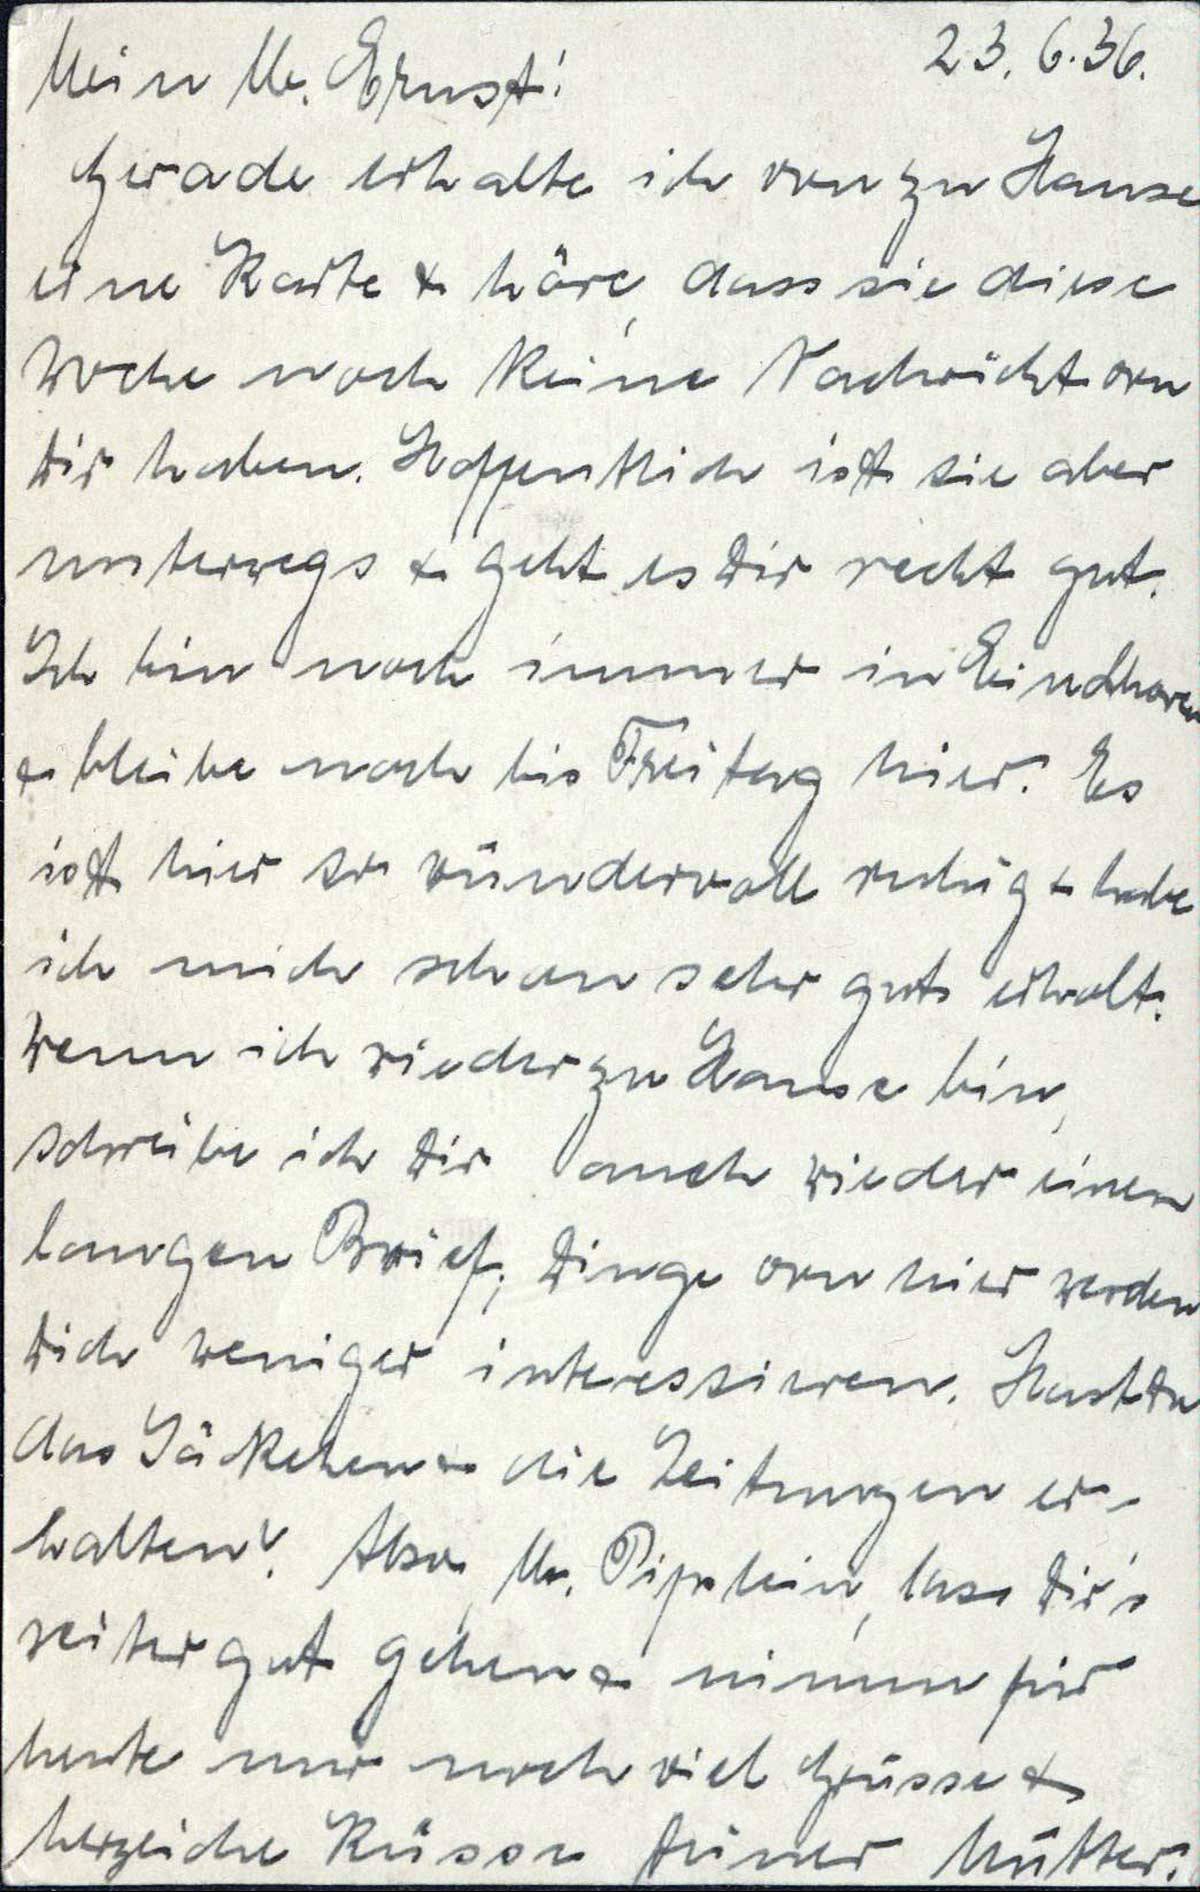 23.6.36.
Mein lb. Ernst!
Gerade erhalte ich von zu Hause
eine Karte & höre, dass sie diese
Woche noch keine Nachricht von
Dir haben. Hoffentlich ist sie aber
unterwegs & geht es Dir recht gut.
Ich bin noch immer in Eindhoven
& bleibe noch bis Freitag hier. Es
ist hier so wundervoll ruhig & habe
ich mich schon sehr gut erholt.
Wenn ich wieder zu Hause bin,
schreibe ich Dir auch wieder einen
langen Brief, Dinge von hier werden
Dich weniger interessieren. Hast Du
das Jäckchen & die Zeitungen er-
halten? Also, lb. Pipslein, lass Dir's
weiter gut gehen & nimm für
heute nur noch viel Grüsse &
herzliche Küsse Deiner Mutter.